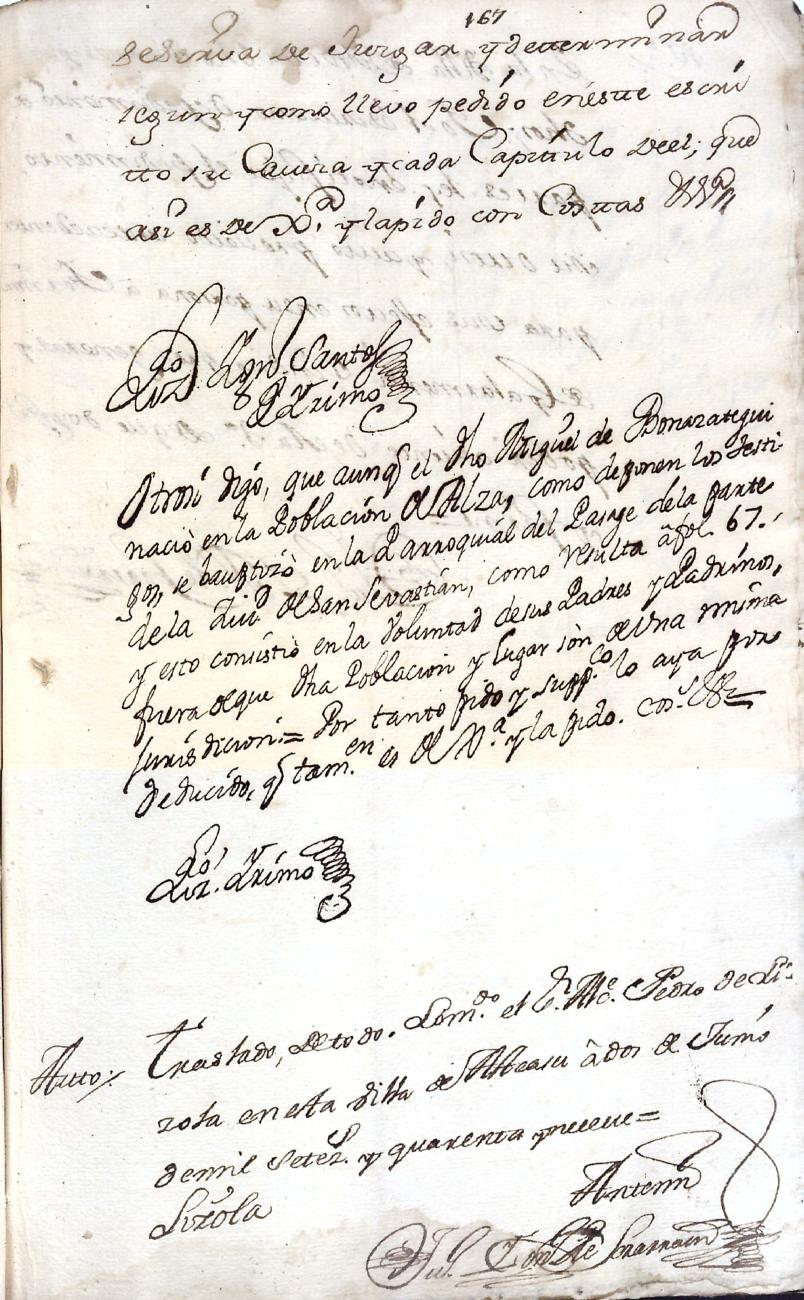 167
se sirva de Juzgar y determinar
segun y como llevo pedido en este escri
tto su Cavera y cada Capitulo deel; que
asi es de X.ª y lapido con Costtas
Liz.do Don Santos
Yrimo
Otrosi digo, que aunq el dho Miguel de Bonazategui
naciò en la Poblaciòn de Alza, como deponen los testi-
gos, se bauptizò en la Parroquial del Pasage de la parte
de la Ziu.d de San Sevastian, como resulta â fol. 67.
y esto consistiò en la voluntad de sus Padres y Padrinos,
fuera de que dha Poblacion y lugar sòn de vna misma
jurisdicion= Por tanto pido y supp.co lo aya por
deducido, q tam.en es de X.ª y la pido. cos.s
Liz.do Yrimo
Auto:/ Traslado, de todo. Lo m.do el S.r Al.e Pedro de Li-
zola en esta villa de Ateasu â dos de Junio
de mil Setez. y quarenta y nueve=
Lizola
Antemi